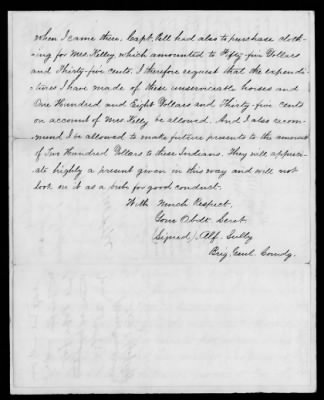 when I came there. Capt. Pell had also to purchase cloth-
ing for Mrs. Kelley, which amounted to Fifty-five Dollars
and Thirty-five cents. I therefore request that the expendi-
tures I have made of these unserviceable horses and
One Hundred and Eight Dollars and Thirty-five cents
on account of Mrs Kelly be allowed. And I also recom-
mend I be allowed to make future presents to the amount
of Two Hundred Dollars to these Indians. They will appreci-
ate highly a present given in this way and will not
look on it as a bribe for good conduct.
With Much Respect,
Your Obdt. Servt.
(Signed) Alf. Sully
Brig. Genl. Comdg.